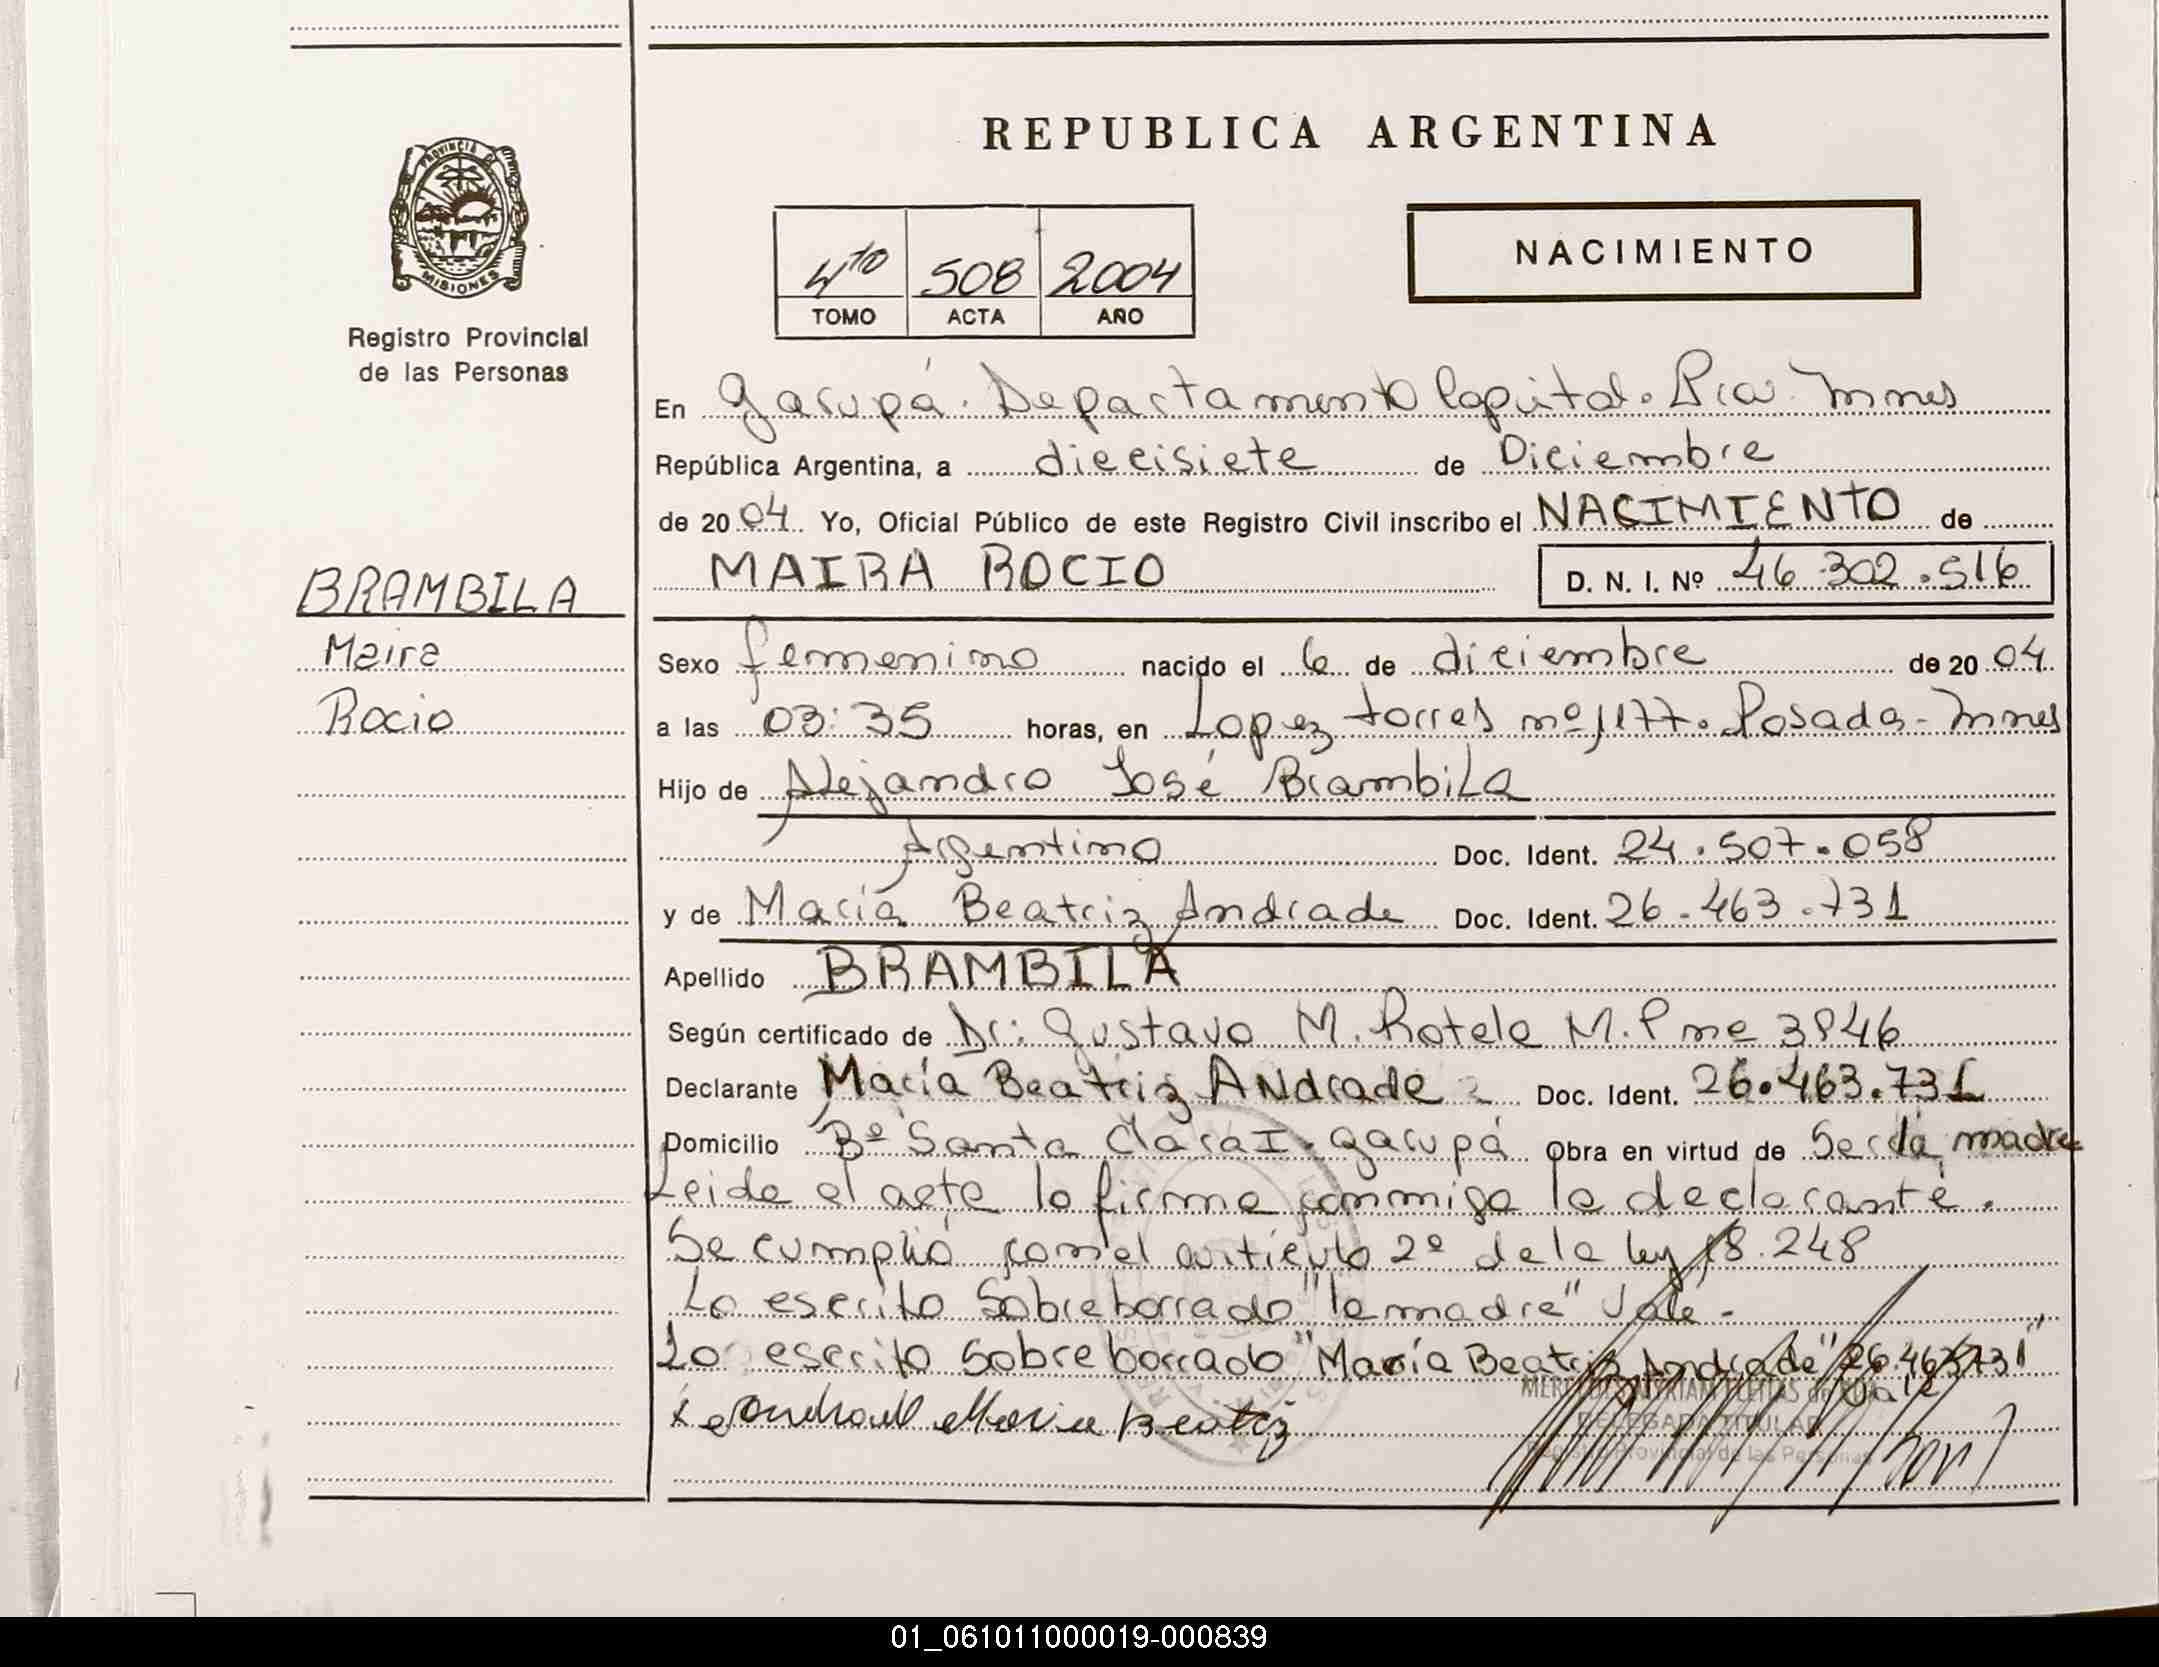 REPUBLICA ARGENTINA
PROVINCIA DE
MISIONES
Registro Provincial
de las Personas
4to 508 2004
TOMO ACTA AÑO
NACIMIENTO
En Garupá. Departamento Capital. Pcia. Mnes
República Argentina, a diecisiete de Diciembre
de 2004 Yo, Oficial Público de este Registro Civil inscribo el NACIMIENTO de
MAIRA ROCIO D. N. I. Nº 46.302.516
BRAMBILA
Maira
Rocio
Sexo femenino nacido el 6 de diciembre de 2004
a las 03:35 horas, en Lopez torres nº 1177. Posadas - Mnes
Hijo de Alejandro José Brambila
Argentino Doc. Ident. 24.507.058
y de María Beatriz Andrade Doc. Ident. 26.463.731
Apellido BRAMBILA
Según certificado de Dr: Gustavo M. Rotela M.P nº 3846
Declarante María Beatriz Andrade Doc. Ident. 26.463.731
Domicilio Bº Santa Clara I - Garupá Obra en virtud de Ser la madre
Leida el acta la firma conmigo la declarante.
Se cumplió con el artículo 2º de la ley 18.248
Lo escrito sobre borrado "la madre" Vale -
Lo escrito sobre borrado "María Beatriz Andrade" "26.463.731"
Vale
x Andrade Maria Beatriz
DELEGADA TITULAR
Registro Provincial de las Personas
01_061011000019-000839